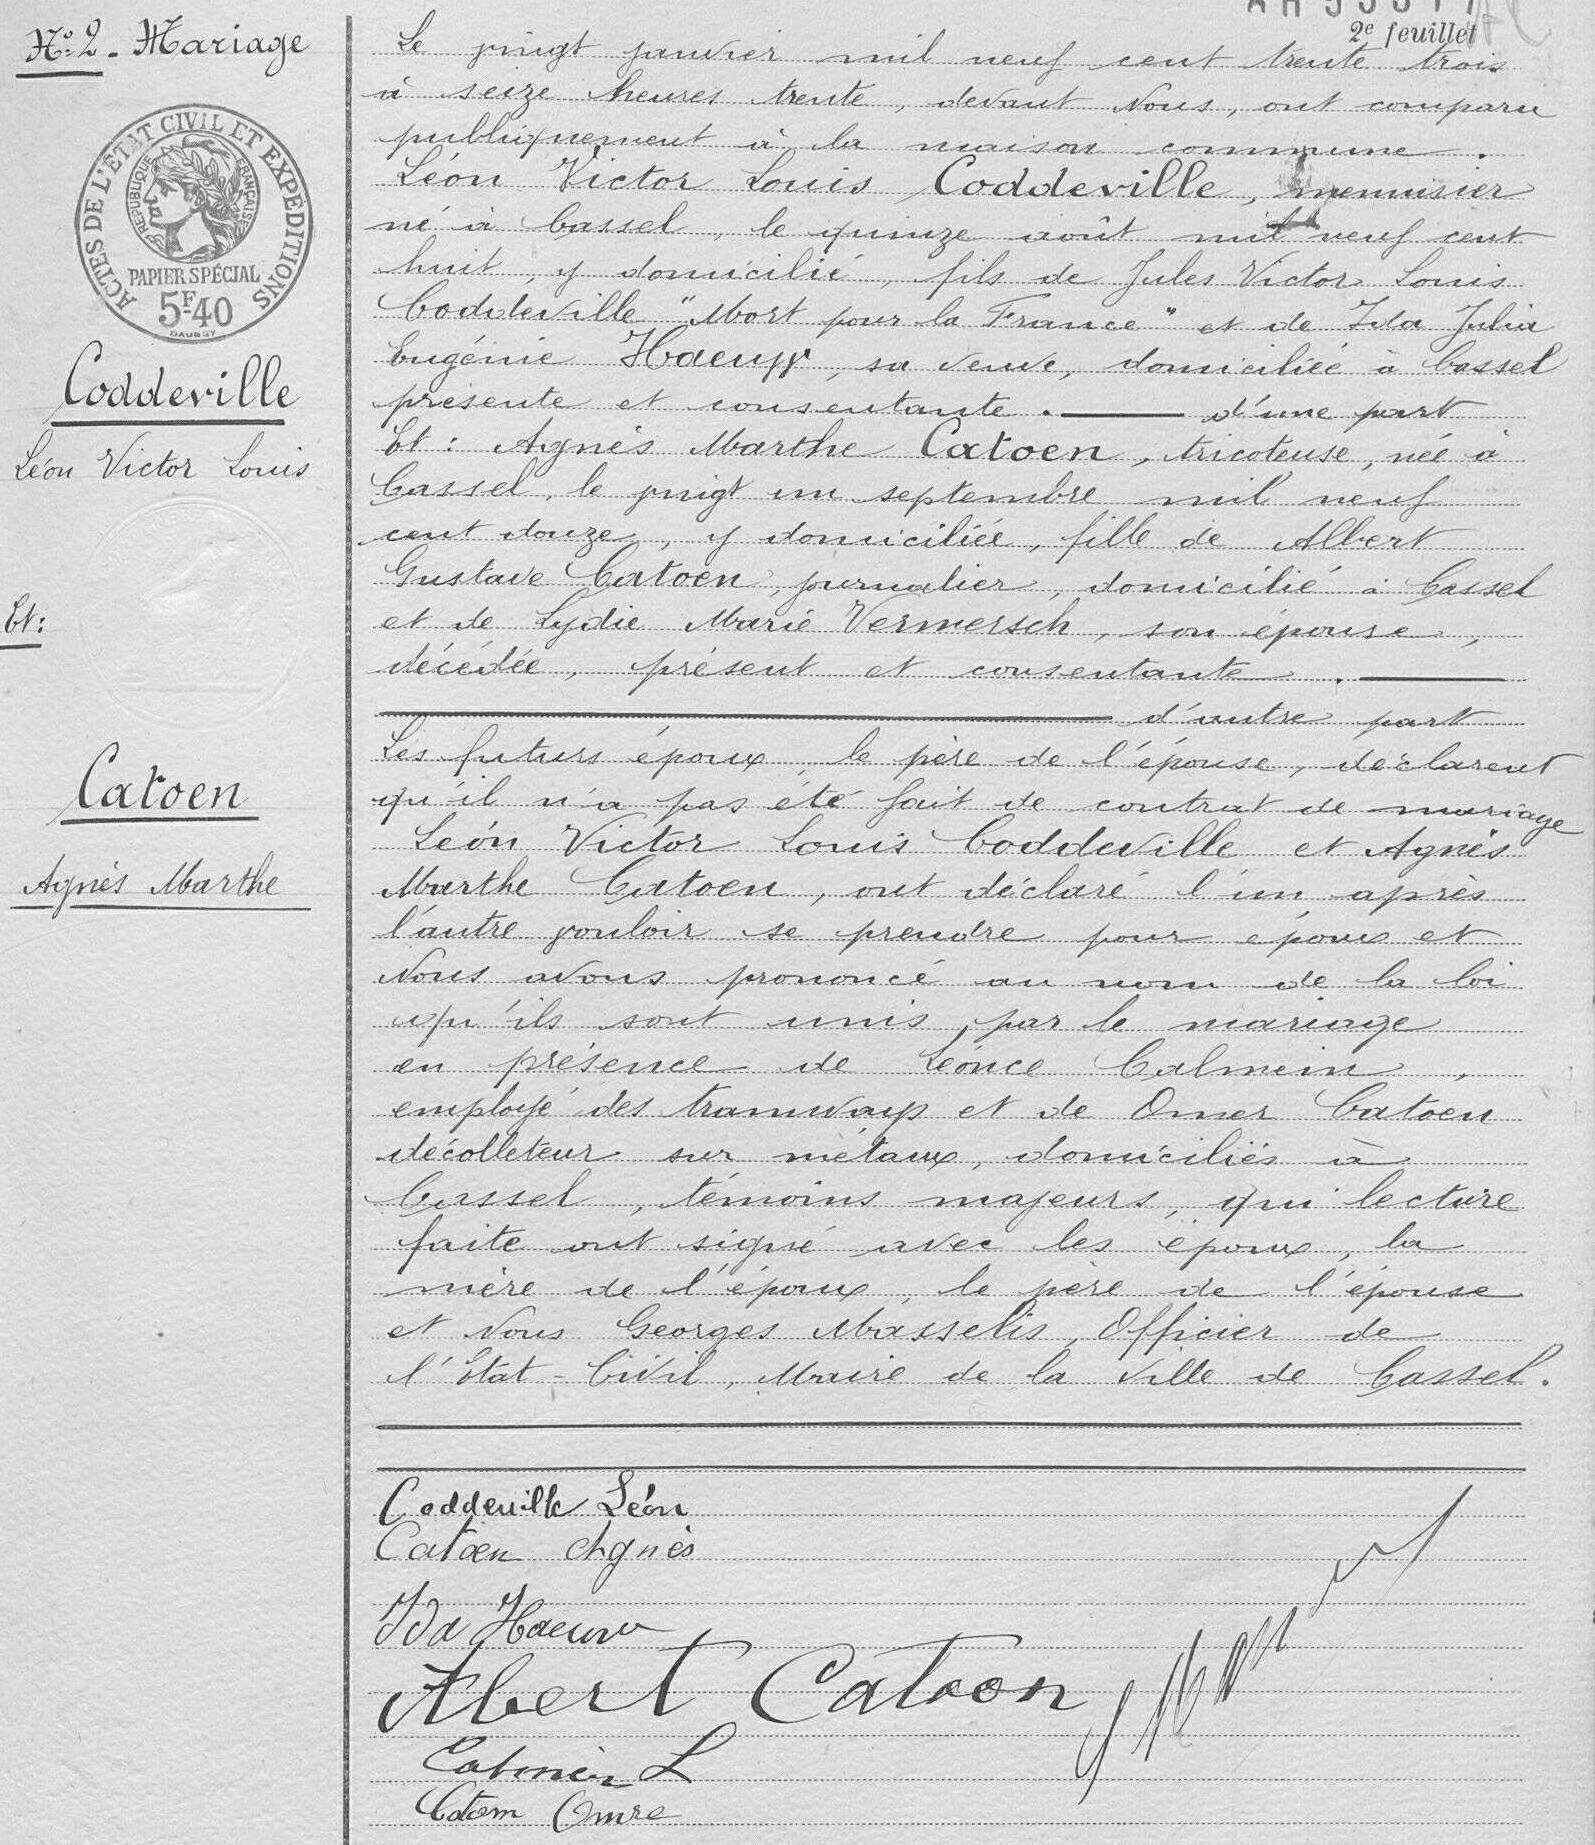 2e feuillet
No 2 - Mariage
ACTES DE L'ÉTAT CIVIL ET EXPÉDITIONS
RÉPUBLIQUE FRANÇAISE
PAPIER SPÉCIAL
5F40
DAUSSY
Coddeville
Léon Victor Louis
Et:
Catoen
Agnès Marthe
Le vingt janvier mil neuf cent trente trois
à seize heures trente, devant Nous, ont comparu
publiquement à la maison commune.
Léon Victor Louis Coddeville, menuisier
né à Cassel, le quinze août mil neuf cent
huit, y domicilié, fils de Jules Victor Louis
Coddeville "Mort pour la France" et de Ida Julia
Eugénie Haeuw, sa veuve, domiciliée à Cassel
présente et consentante. d'une part
Et: Agnès Marthe Catoen, tricoteuse, née à
Cassel, le vingt un septembre mil neuf
cent douze, y domiciliée, fille de Albert
Gustave Catoen, journalier, domicilié à Cassel
et de Lydie Marie Vermersch, son épouse,
décédée, présent et consentante.
d'autre part
Les futurs époux, le père de l'épouse, déclarent
qu'il n'a pas été fait de contrat de mariage
Léon Victor Louis Coddeville et Agnès
Marthe Catoen, ont déclaré l'un après
l'autre vouloir se prendre pour époux et
Nous avons prononcé au nom de la loi
qu'ils sont unis par le mariage
en présence de Léonce Calmein,
employé des tramways et de Omer Catoen
décolleteur sur métaux, domiciliés à
Cassel, témoins majeurs, qui lecture
faite ont signé avec les époux, la
mère de l'époux, le père de l'épouse
et Nous Georges Masselis, Officier de
l'Etat-Civil, Maire de la Ville de Cassel.
Coddeville Léon
Catoen Agnès
Ida Haeuw
Albert Catoen
L
Catoen Omre